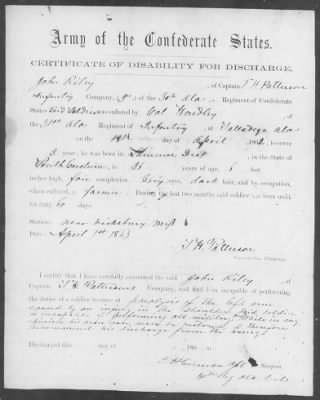 Army of the Confederate States.
CERTIFICATE OF DISABILITY FOR DISCHARGE.
John Riley, of Captain T H Patterson
Infantry Company, of the 30th Ala Regiment of Confederate
States was enlisted by Col
the 31st Ala Regiment of Infantry at Talladega Ala
on the 19th day of April 1862 to serve
3 year; he was born in Dist in the State of
South Carolina, is 25 years of age, 6 feet
inches high, fair complexion, Grey eyes, dark hair, and by occupation,
when enlisted, a farmer During the last two months said soldier has been unfit
for duty 60 days.
Station: near Vicksburg Miss
Date: April 1st 1863
T. H. Patterson
Commanding Company.
I certify that I have carefully examined the said John Riley of
Captain T H Pattersons Company, and find him incapable of performing
the duties of a soldier because of paralysis of the left arm
caused by an injury in the shoulder said soldier
is incapable of performing any military duty while in
I therefore
recommend his discharge from the army
Discharged this day of 186 at
Surgeon
30th Reg Ala Vols